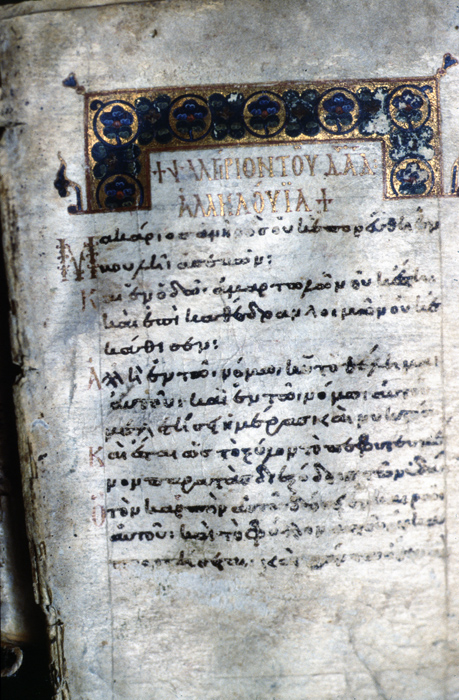 + ΨΑΛΤΗΡΙΟΝ ΤΟΥ ΔΑΔ
ΑΛΛΗΛΟΥΪΑ +
Μακάριος ἀνὴρ ὃς οὐκ ἐπορεύθη ἐν
βουλῆι ἀσεβῶν:
Καὶ ἐν ὁδῶι ἁμαρτωλῶν οὐκ ἔστη
καὶ ἐπὶ καθέδραν λοιμῶν οὐκ ἐ
κάθισεν:
Ἀλλ' ἢ ἐν τῶι νόμωι κυ τὸ θέλημα
αὐτοῦ: καὶ ἐν τῶι νόμωι αὐτοῦ
μελετήσει ἡμέρας καὶ νυκτός
Καὶ ἔσται ὡς τὸ ξύλον τὸ πεφυτευμέ
νον παρὰ τὰς διεξόδους τῶν ὑδά
τὸν καρπὸν αὐτοῦ δώσει ἐν καιρῶ
αὐτοῦ: καὶ τὸ φύλλον αὐτοῦ οὐκ